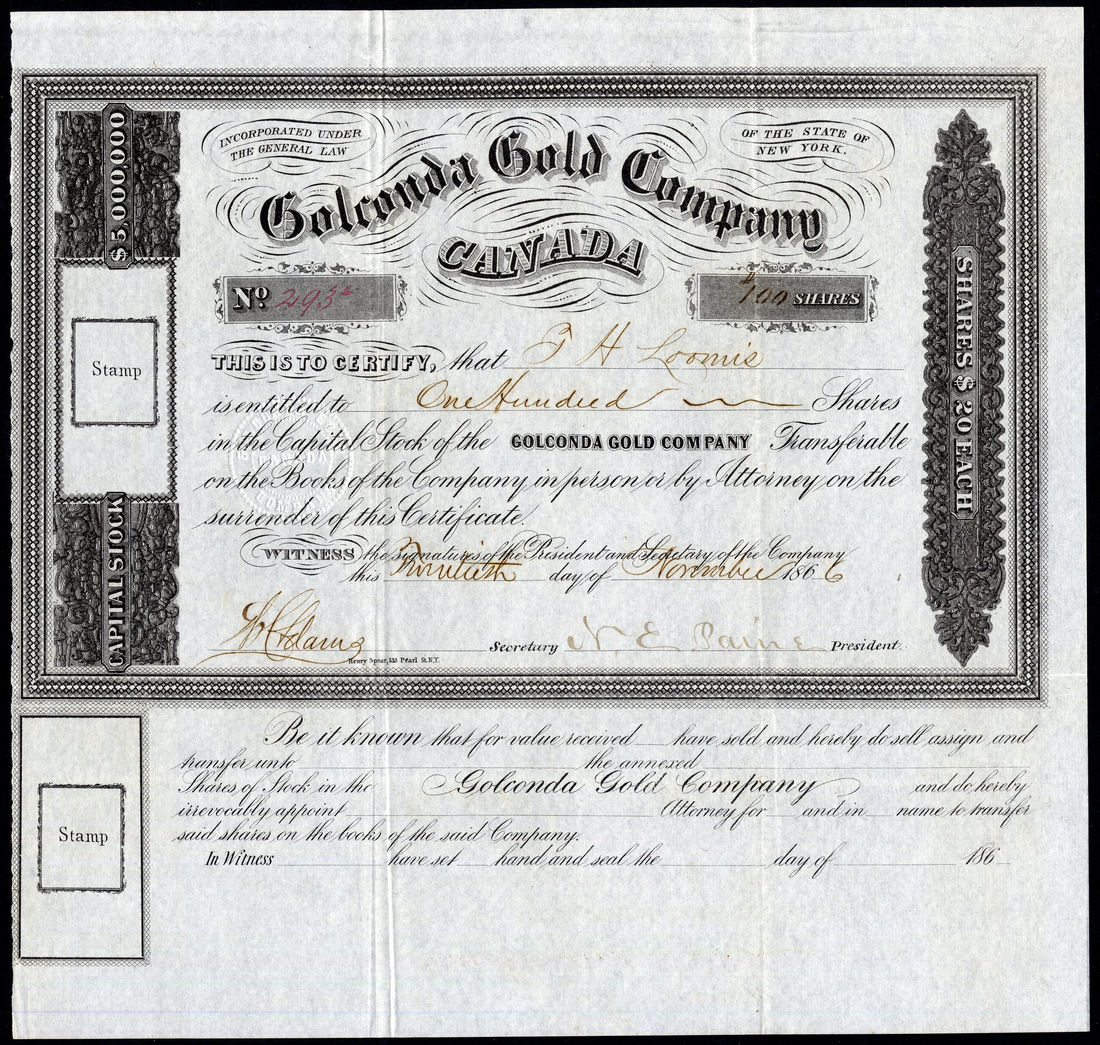 INCORPORATED UNDER
THE GENERAL LAW
OF THE STATE OF
NEW YORK.
Golconda Gold Company
CANADA
$5,000,000
CAPITAL STOCK
SHARES $20 EACH
Stamp
No. 293
100 SHARES
THIS IS TO CERTIFY, that T H Loomis
is entitled to One Hundred Shares
in the Capital Stock of the GOLCONDA GOLD COMPANY Transferable
on the Books of the Company in person or by Attorney on the
surrender of this Certificate.
WITNESS the signatures of the President and Secretary of the Company
this day of November 1866
Secretary N. E. Paine President.
Henry Spear, 333 Pearl St. N.Y.
Be it known that for value received have sold and hereby do sell assign and
transfer unto the annexed
Shares of Stock in the Golconda Gold Company and do hereby
irrevocably appoint Attorney for and in name to transfer
said shares on the books of the said Company.
In Witness have set hand and seal the day of 186
Stamp